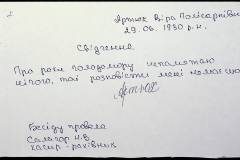 Яртюк Віра Полікарпівна
29.06.1930 р.н.
Свідчення
Про роки голодомору непам'ятаю
нічого, тай розповісти мені нема що
Бесіду провела
Салагор Н.В.
касир-рахівник